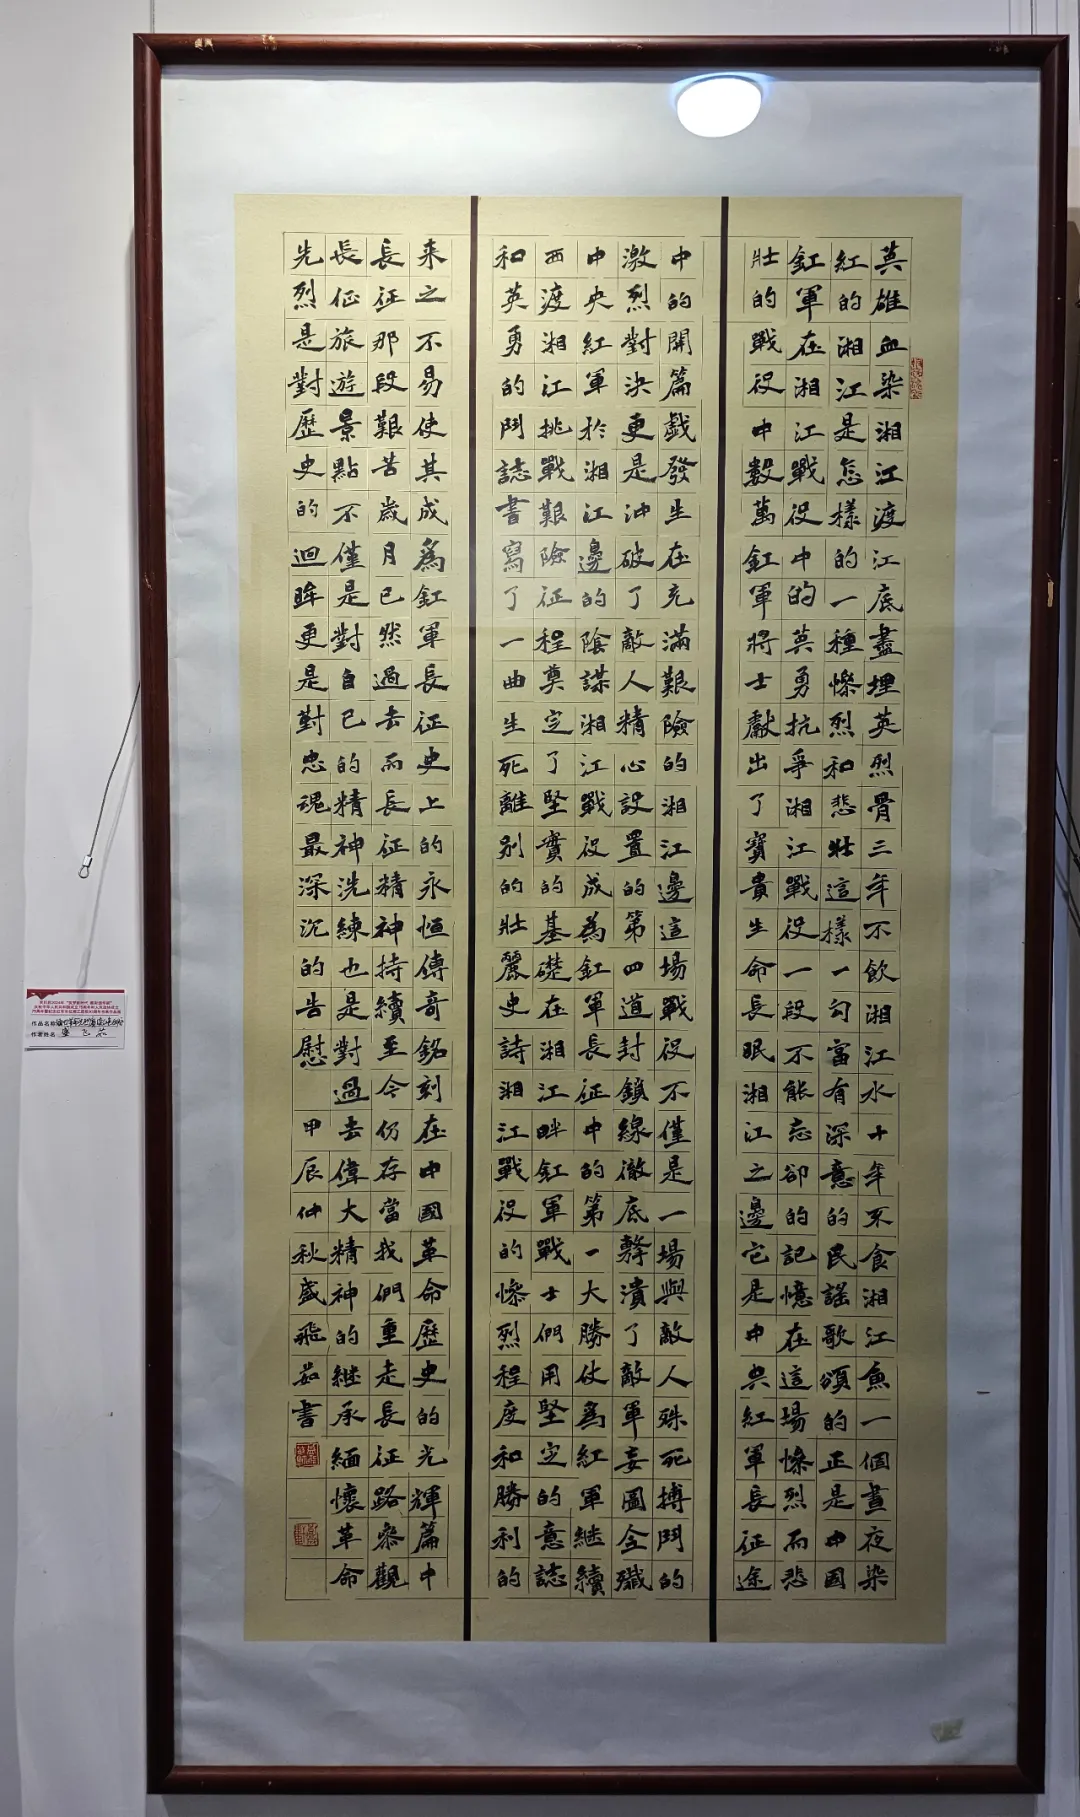 英雄血染湘江渡江底盡埋英烈骨三年不飲湘江水十年不食湘江魚一個晝夜染
紅的湘江是怎樣的一種慘烈和悲壯這樣一勾富有深意的民謠歌頌的正是中國
釭軍在湘江戰役中的英勇抗爭湘江戰役一段不能忘卻的記憶在這場慘烈而悲
壯的戰役中數萬釭軍將士獻出了寶貴生命長眠湘江之邊它是中央紅軍長征途
中的開篇戲發生在充滿艱險的湘江邊這場戰役不僅是一場與敵人殊死搏鬥的
激烈對決更是沖破了敵人精心設置的第四道封鎖線徹底擊潰了敵軍妄圖全殲
中央紅軍於湘江邊的陰謀湘江戰役成為釭軍長征中的第一大勝仗為紅軍継續
西渡湘江挑戰艱險征程奠定了堅實的基礎在湘江畔釭軍戰士們用堅定的意誌
和英勇的鬥誌書寫了一曲生死離别的壯麗史詩湘江戰役的慘烈程度和勝利的
来之不易使其成為釭軍長征史上的永恒傳奇銘刻在中國革命歷史的光輝篇中
長征那段艱苦歲月已然過去而長征精神持續至今仍存當我們重走長征路參觀
長征旅遊景點不僅是對自己的精神洗練也是對過去偉大精神的継承緬懷革命
先烈是對歷史的迴眸更是對忠魂最深沉的告慰 甲辰仲秋盛飛茹書
作品名称
作者姓名